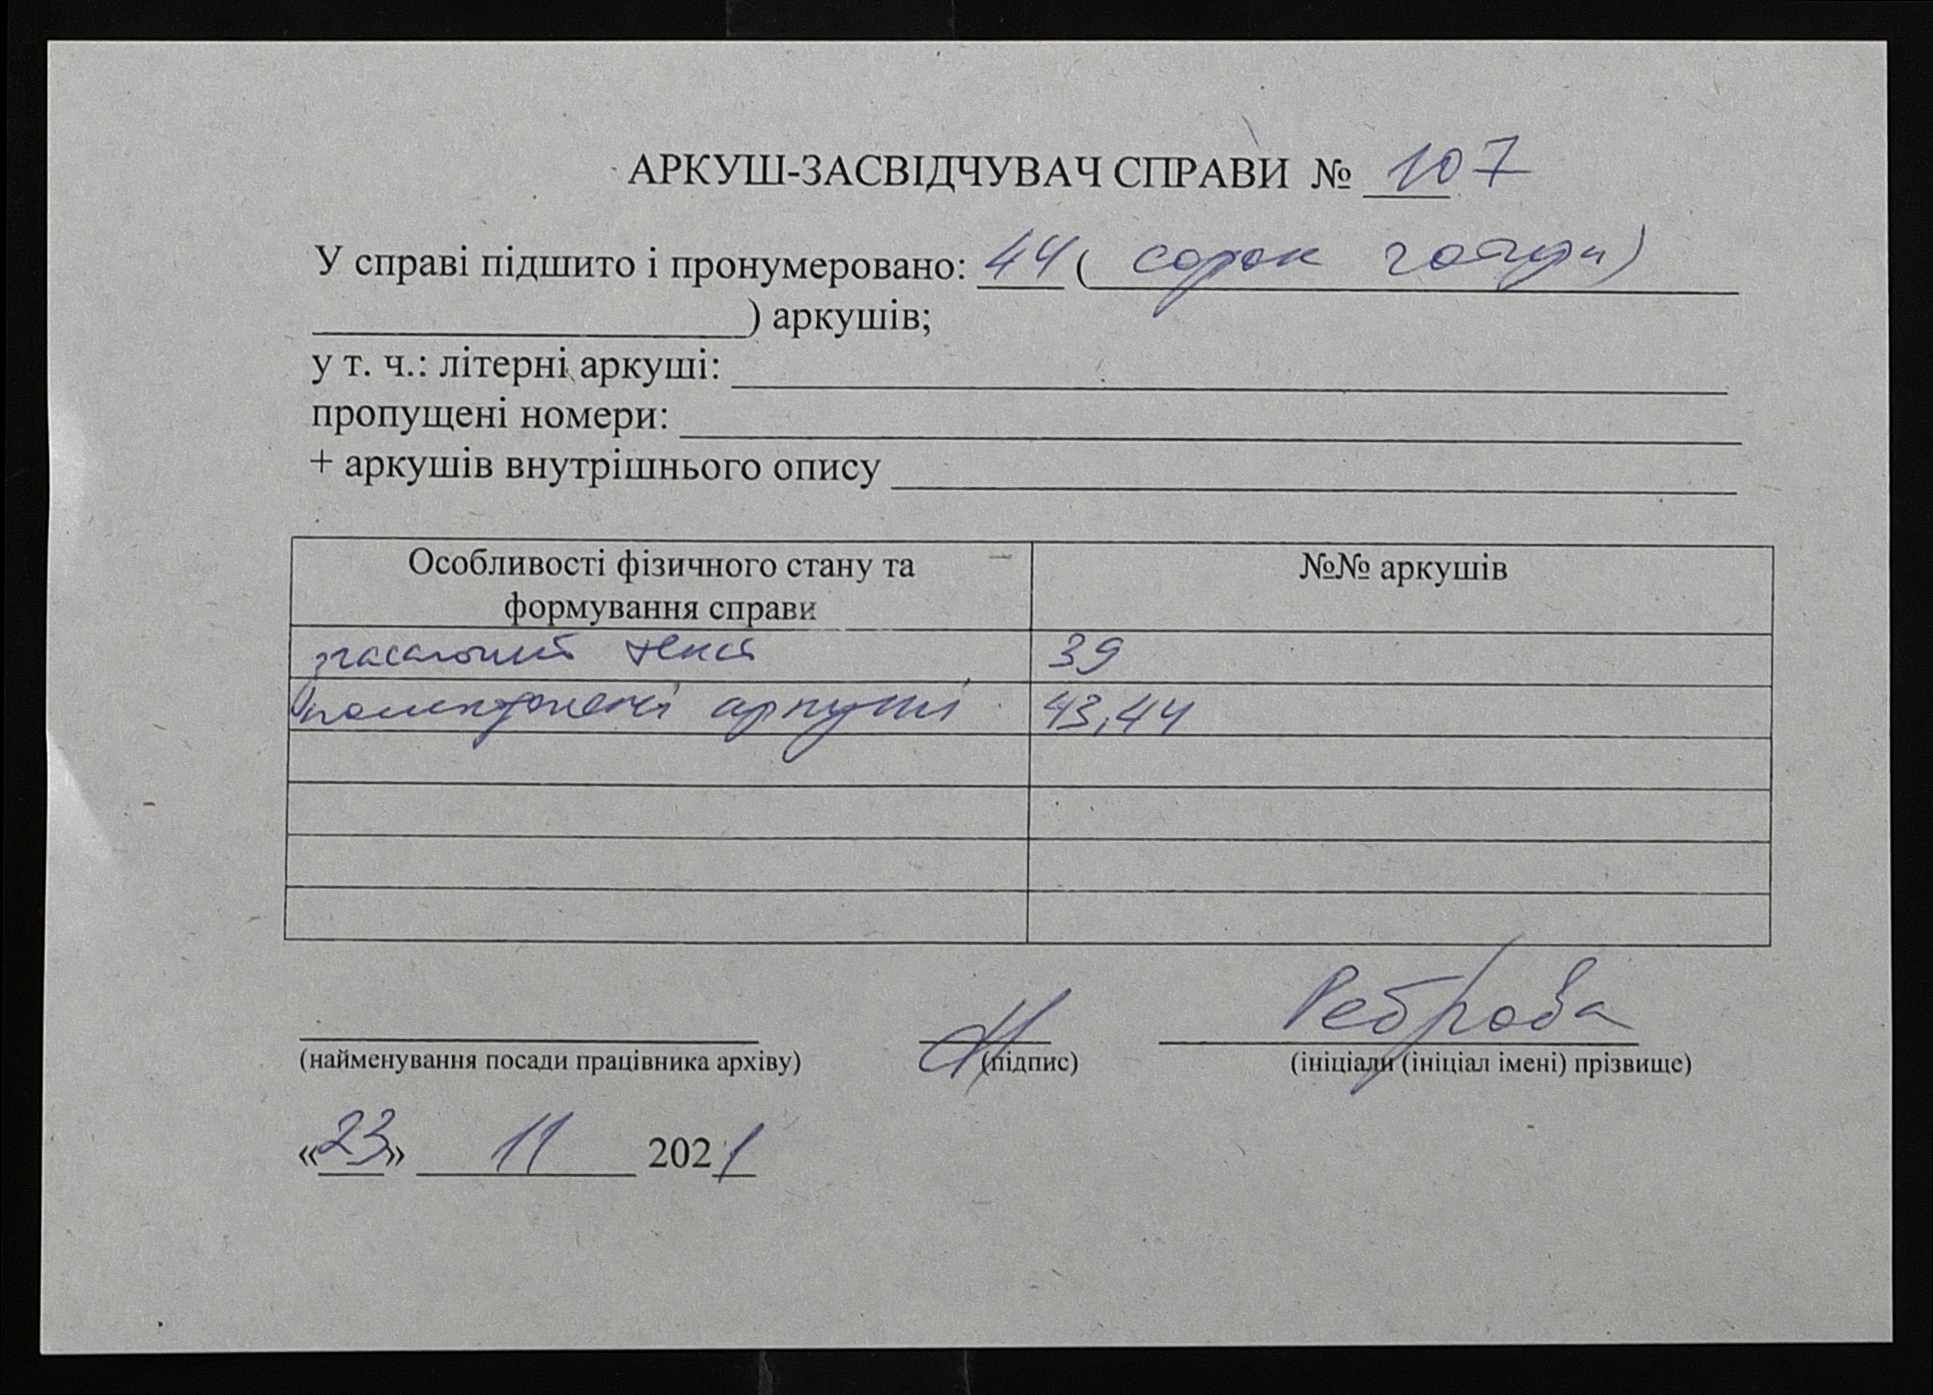 АРКУШ-ЗАСВІДЧУВАЧ СПРАВИ № 107
У справі підшито і пронумеровано: 44 ( сорок чотири)
) аркушів;
у т. ч.: літерні аркуші:
пропущені номери:
+ аркушів внутрішнього опису
Особливості фізичного стану та №№ аркушів
формування справи
згасаючий текст 39
пошкоджені аркуші 43,44
Реброва
(найменування посади працівника архіву) (підпис) (ініціали (ініціал імені) прізвище)
«23» 11 2021